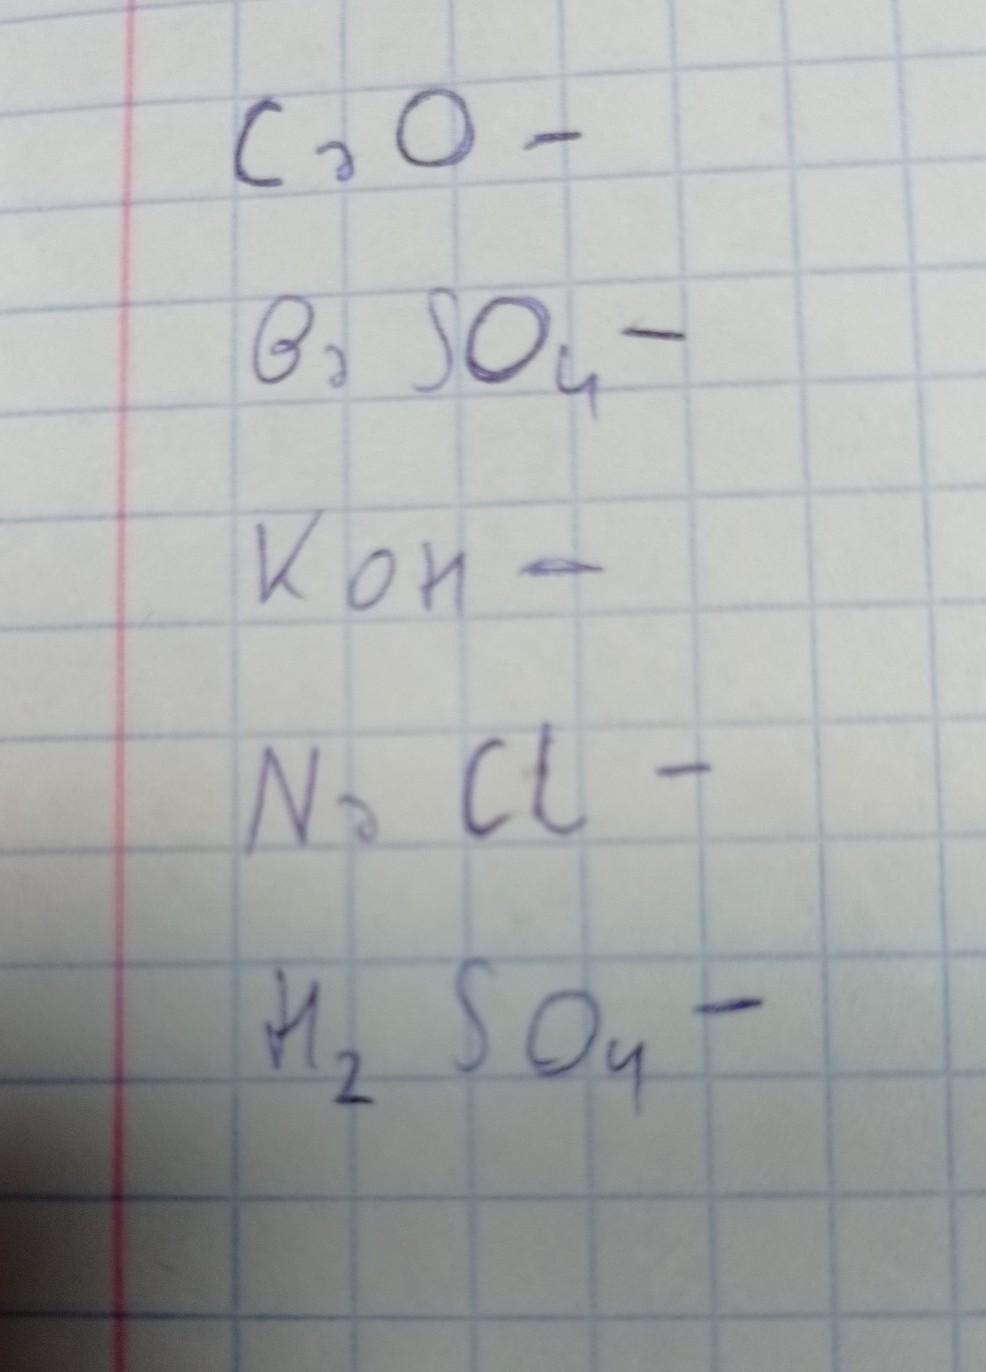 CaO -
BaSO₄ -
KOH -
NaCl -
H₂SO₄ -